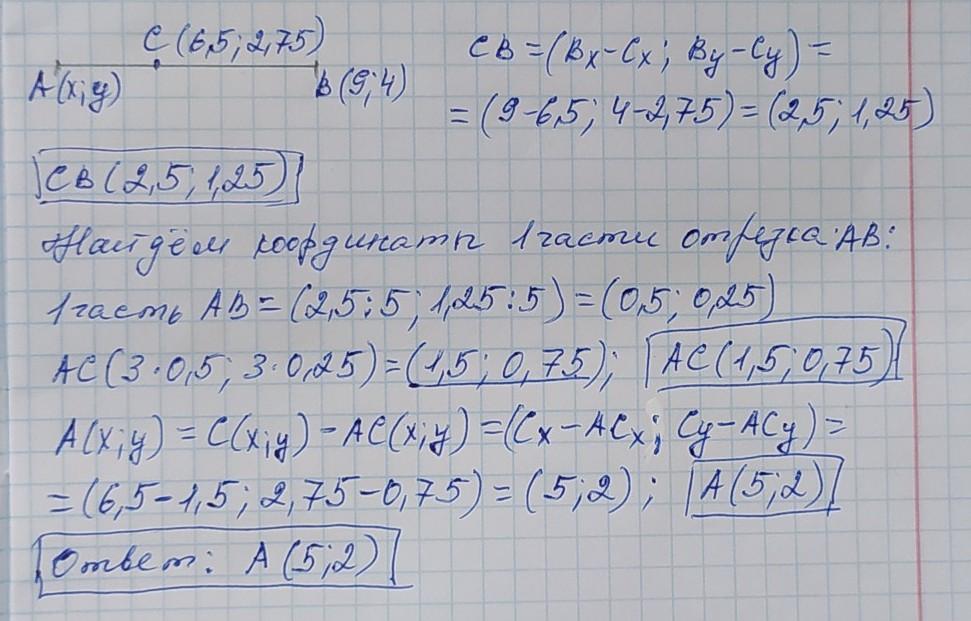 C(6,5; 2,75)
A(x;y)
B(9;4)
CB=(Bx-Cx; By-Cy)=
=(9-6,5; 4-2,75)=(2,5; 1,25)
CB(2,5; 1,25)
Найдём координаты 1 части отрезка AB:
1 часть AB=(2,5:5; 1,25:5)=(0,5; 0,25)
AC(3·0,5; 3·0,25)=(1,5; 0,75); AC(1,5; 0,75)
A(x;y)=C(x;y)-AC(x;y)=(Cx-ACx; Cy-ACy)=
=(6,5-1,5; 2,75-0,75)=(5;2); A(5;2)
Ответ: A(5;2)